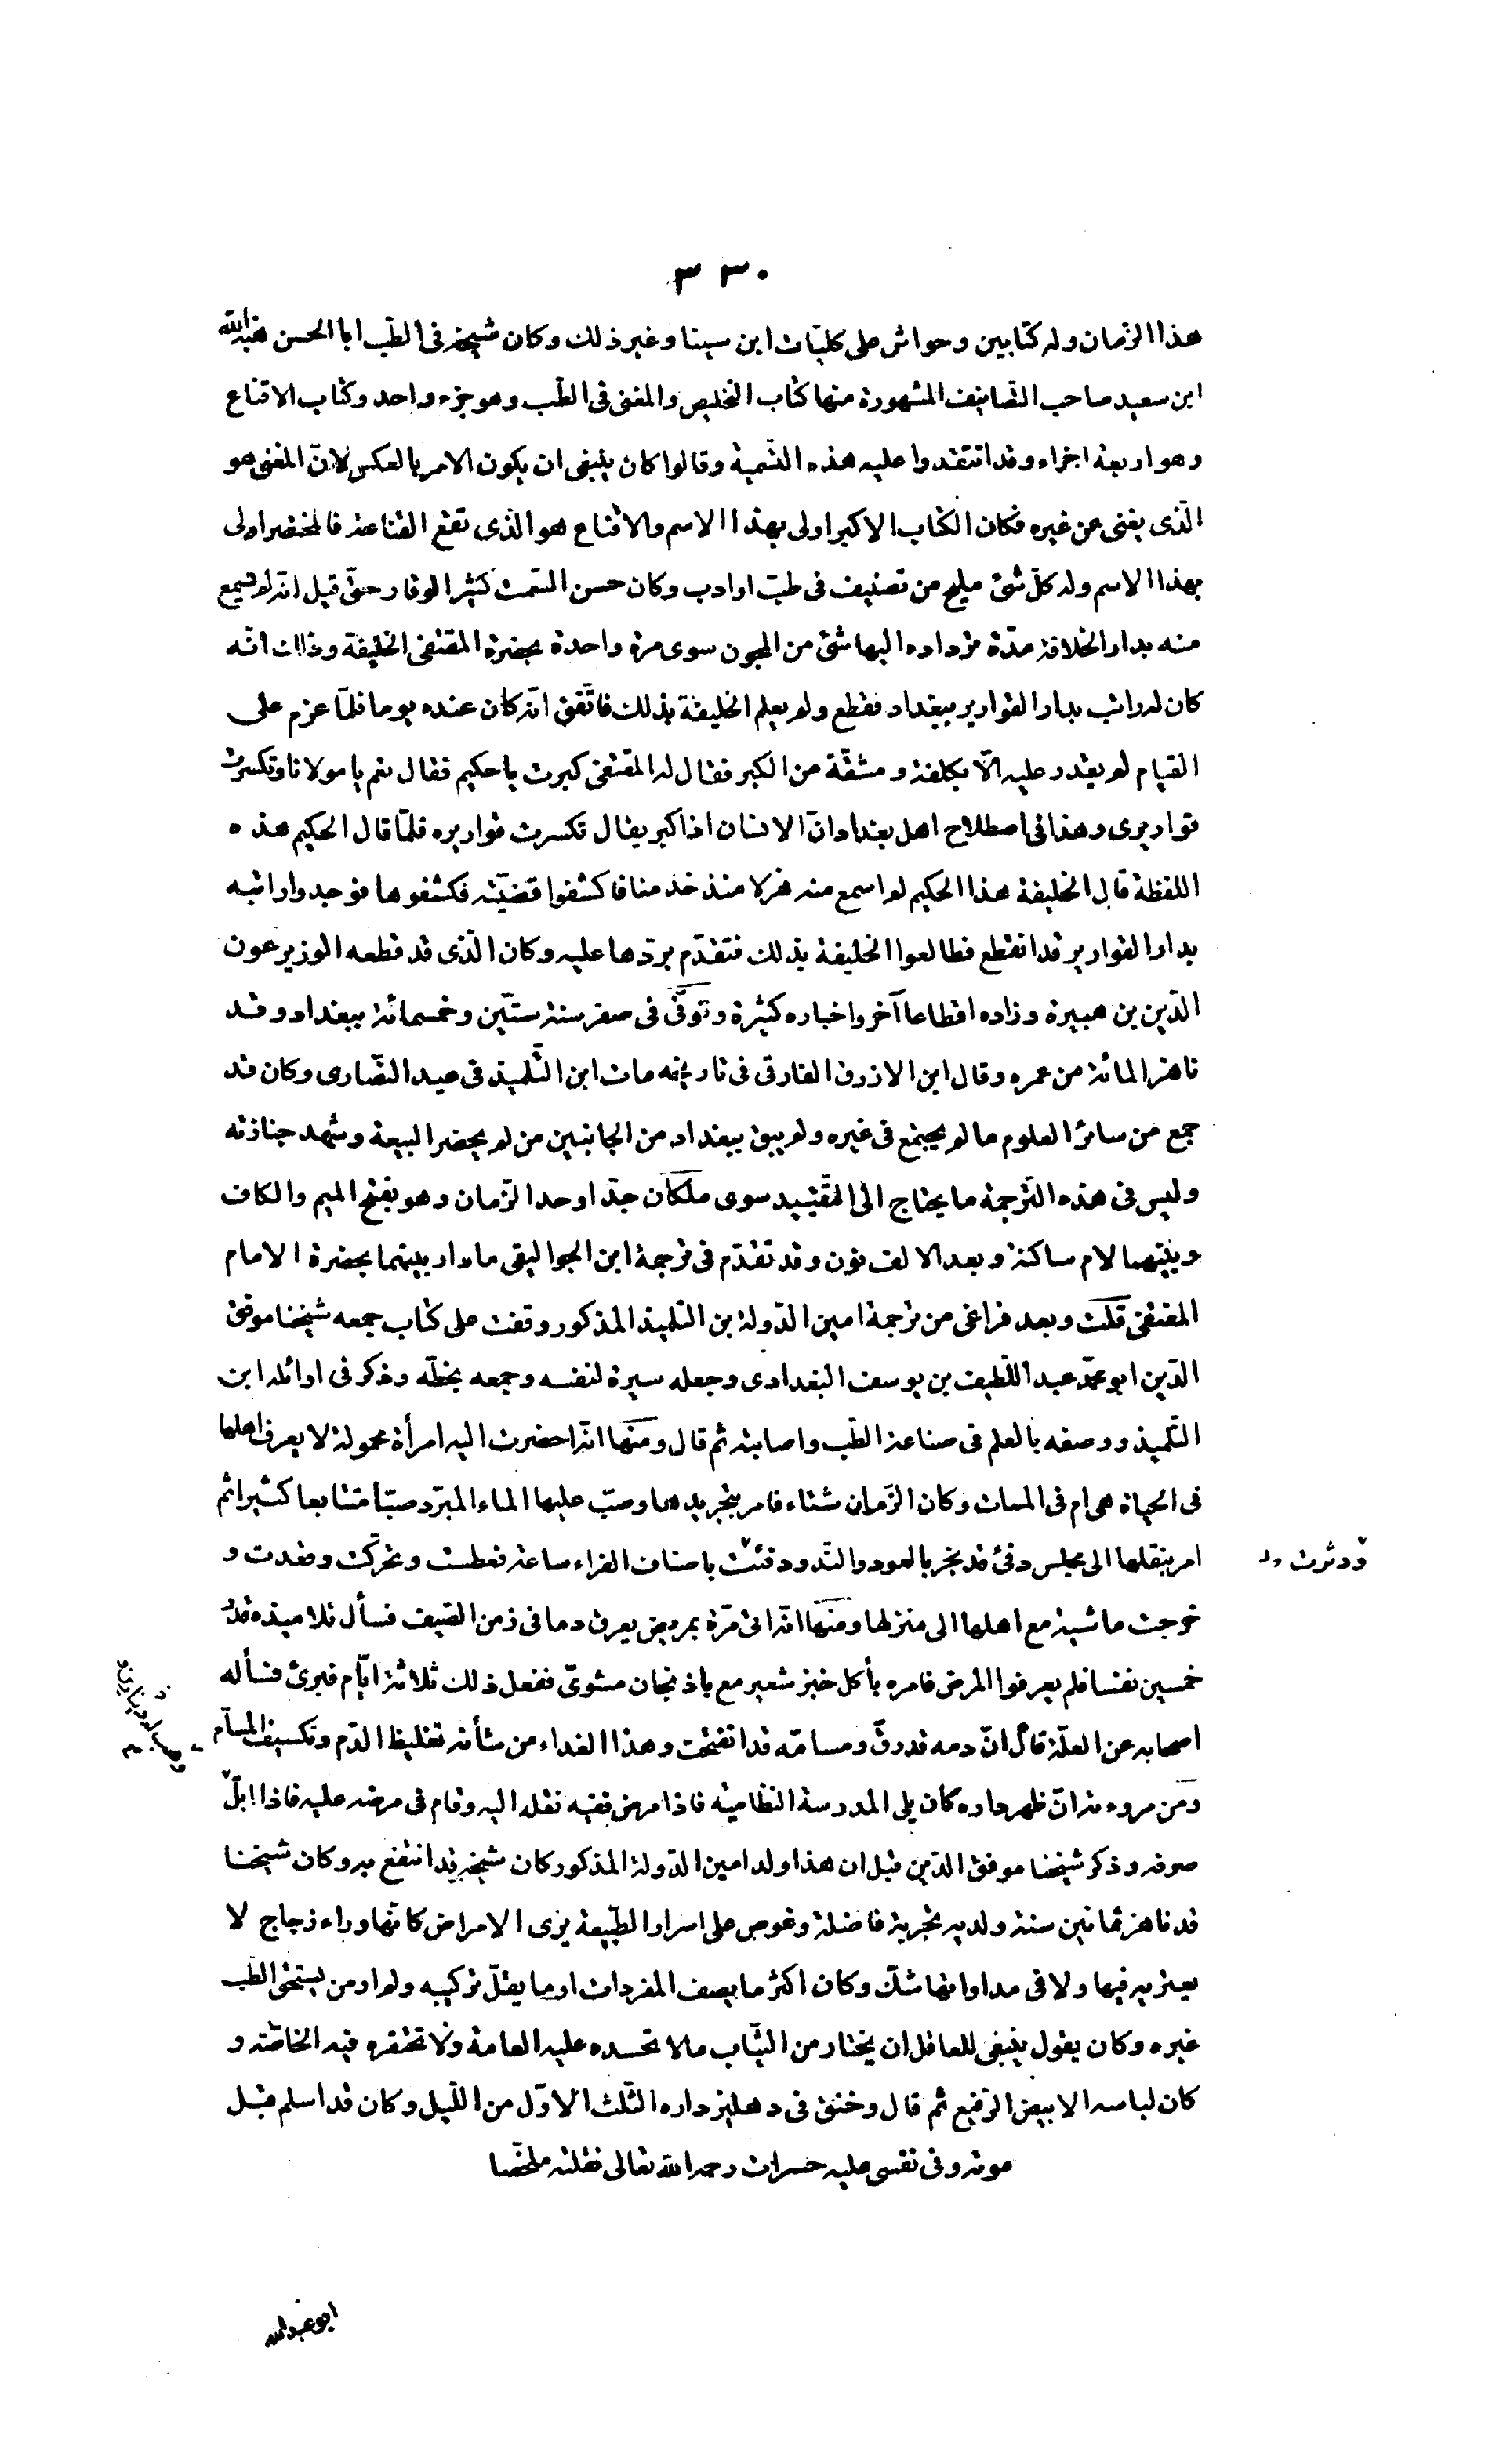 ٣٣٠
هذا الزّمان وله كتابين وحواش على كليّات ابن سينا وغير ذلك وكان شيخه فى الطّب ابا الحسن هبة اللّه
ابن سعيد صاحب التّصانيف المشهورة منها كتاب التخليص والمغنى فى الطّب وهو جزء واحد وكتاب الاقناع
وهو اربعة اجزاء وقد انتقدوا عليه هذه التّسمية وقالوا كان ينبغى ان يكون الامر بالعكس لانّ المغنى هو
الّذى يغنى عن غيره فكان الكتاب الاكبر اولى بهذا الاسم والاقناع هو الذى تقع القناعة فالمختصر اولى
بهذا الاسم وله كلّ شئ مليح من تصنيف فى طبّ او ادب وكان حسن السّمت كثير الوقار حتّى قيل انّه لم يسمع
منه بدار الخلافة مدّة تردّاده اليها شئ من المجون سوى مرة واحدة بحضرة المقتفى الخليفة وذلك انّه
كان له راتب بدار القوارير ببغداد فقطع ولم يعلم الخليفة بذلك فاتّفق انّه كان عنده يوما فلمّا عزم على
القيام لم يقدر عليه الّا بكلفة ومشقّة من الكبر فقال له المقتفى كبرت يا حكيم فقال نعم يا مولانا وتكسرت
قواريرى وهذا فى اصطلاح اهل بغداد انّ الانسان اذا كبر يقال تكسرت قواريره فلمّا قال الحكيم هذه
اللفظة قال الخليفة هذا الحكيم لم اسمع منه هزلا منذ خدمنا فاكشفوا قضيّته فكشفوها فوجدوا راتبه
بدار القوارير قد انقطع فطالعوا الخليفة بذلك فتقدّم بردّها عليه وكان الّذى قد قطعه الوزير عون
الدّين بن هبيرة وزاده اقطاعا آخر واخباره كثيرة وتوفّى فى صفر سنة ستّين وخمسمائة ببغداد وقد
ناهز المائة من عمره وقال ابن الازرق الفارقى فى تاريخه مات ابن التّلميذ فى عيد النصّارى وكان قد
جمع من سائر العلوم ما لم يجتمع فى غيره ولم يبق ببغداد من الجانبين من لم يحضر البيعة وشهد جنازته
وليس فى هذه التّرجمة ما يحتاج الى التّقييد سوى ملكان جدّ اوحد الزّمان وهو بفتح الميم والكاف
وبينهما لام ساكنة وبعد الالف نون وقد تقدّم فى ترجمة ابن الجواليقى ما دار بينهما بحضرة الامام
المقتفى قلت وبعد فراغى من ترجمة امين الدّولة بن التلميذ المذكور وقفت على كتاب جمعه شيخنا موفق
الدّين ابو محمّد عبد اللّطيف بن يوسف البغدادى وجعله سيرة لنفسه وجمعه بخطّه وذكر فى اوائله ابن
التّلميذ ووصفه بالعلم فى صناعة الطّب واصابته ثم قال ومنها انّه احضرت اليه امرأة محمولة لا يعرف اهلها
فى الحياة هى ام فى الممات وكان الزّمان شتاء فامر بتجريدها وصبّ عليها الماء المبرّد صبّا متتابعا كثيرا ثم
امر بنقلها الى مجلس دفئ قد بخر بالعود والنّد ودفئت باصناف الفراء ساعة فعطست وتحرّكت وقعدت و
ودثرت
خرجت ماشية مع اهلها الى منزلها ومنها انّه اتى مرّة بمريض يعرق دما فى زمن الصّيف فسأل تلاميذه قدر
خمسين نفسا فلم يعرفوا المرض فامره بأكل خبز شعير مع باذنجان مشوىّ ففعل ذلك ثلاثة ايّام فبرئ فسأله
اصحابه عن العلّة قال انّ دمه قد رقّ ومسامّه قد تفتحت وهذا الغذاء من شأنه تغليظ الدّم وتكسيف المسآم
ومن مروءته انّ ظهر داره كان يلى المدرسة النّظامية فاذا مرض فقيه نقله اليه وقام فى مرضه عليه فاذا ابلّ
صرفه وذكر شيخنا موفق الدّين قبل ان هذا ولد امين الدّولة المذكور كان شيخه قد انتفع به وكان شيخنا
قد ناهز ثمانين سنة ولديه تجربة فاضلة وغوص على اسرار الطّبيعة يرى الامراض كانّها وراء زجاج لا
يعتريه فيها ولا فى مداواتها شكّ وكان اكثر ما يصف المفردات او ما يقلّ تركيبه ولم ار من يستحقّ الطّب
غيره وكان يقول ينبغى للعاقل ان يختار من الثّياب مالا تحسده عليه العامة ولا تحتقره فيه الخاصّة و
كان لباسه الابيض الرّفيع ثم قال وخنق فى دهليز داره الثّلث الاوّل من اللّيل وكان قد اسلم قبل
موته وفى نفسى عليه حسرات رحمه اللّه تعالى نقلته ملخّصا
ابو عبد الله